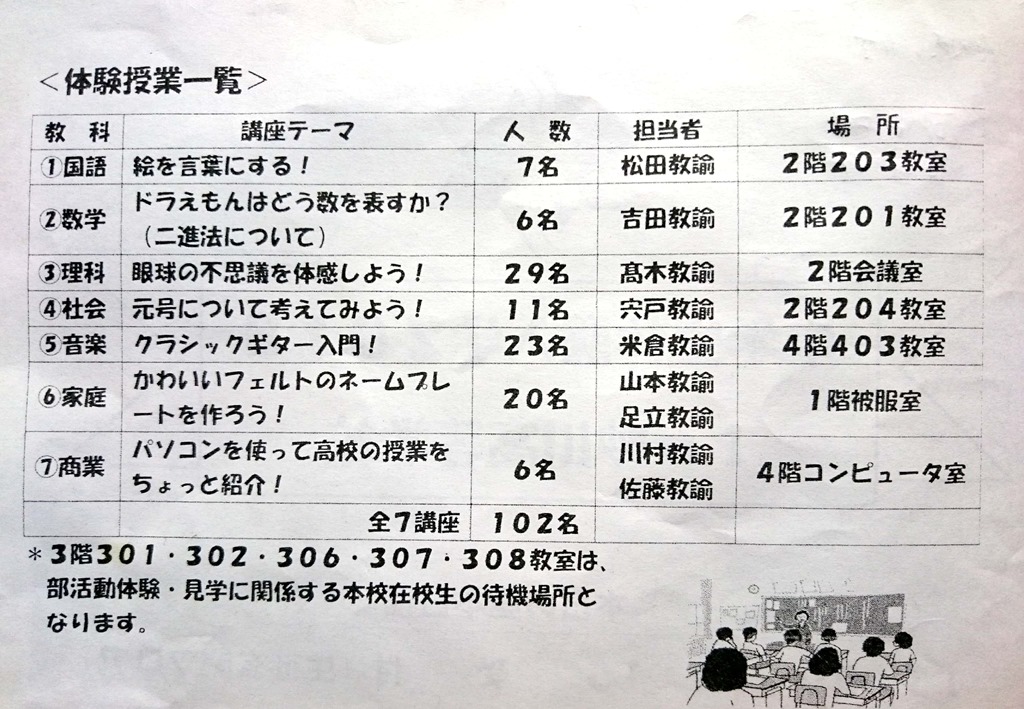 ＜体験授業一覧＞
教 科 講座テーマ 人 数 担当者 場 所
①国語 絵を言葉にする！ ７名 松田教諭 ２階２０３教室
②数学 ドラえもんはどう数を表すか？ ６名 吉田教諭 ２階２０１教室
（二進法について）
③理科 眼球の不思議を体感しよう！ ２９名 髙木教諭 ２階会議室
④社会 元号について考えてみよう！ １１名 宍戸教諭 ２階２０４教室
⑤音楽 クラシックギター入門！ ２３名 米倉教諭 ４階４０３教室
⑥家庭 かわいいフェルトのネームプレ ２０名 山本教諭 １階被服室
ートを作ろう！ 足立教諭
⑦商業 パソコンを使って高校の授業を ６名 川村教諭 ４階コンピュータ室
ちょっと紹介！ 佐藤教諭
全７講座 １０２名
＊３階３０１・３０２・３０６・３０７・３０８教室は、
部活動体験・見学に関係する本校在校生の待機場所と
なります。